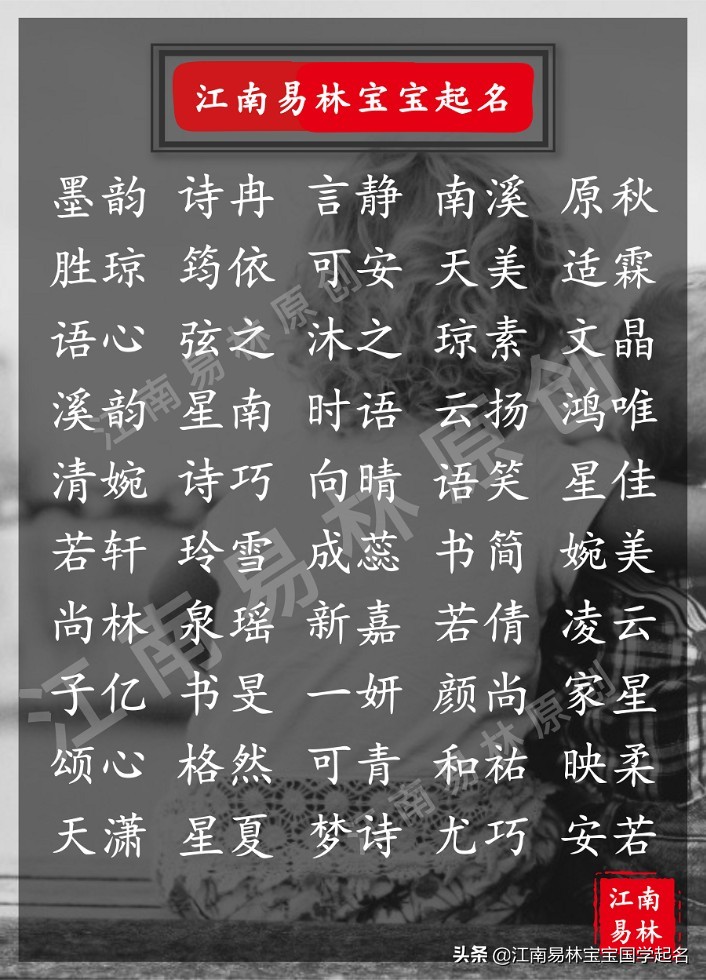 江南易林宝宝起名
墨韵 诗冉 言静 南溪 原秋
胜琼 筠依 可安 天美 适霖
语心 弦之 沐之 琼素 文晶
溪韵 星南 时语 云扬 鸿唯
清婉 诗巧 向晴 语笑 星佳
若轩 玲雪 成蕊 书简 婉美
尚林 泉瑶 新嘉 若倩 凌云
子亿 书旻 一妍 颜尚 家星
颂心 格然 可青 和祐 映柔
天潇 星夏 梦诗 尤巧 安若
江南易林原创
江南易林原创
江南易林原创
江南
易林
头条 @江南易林宝宝国学起名